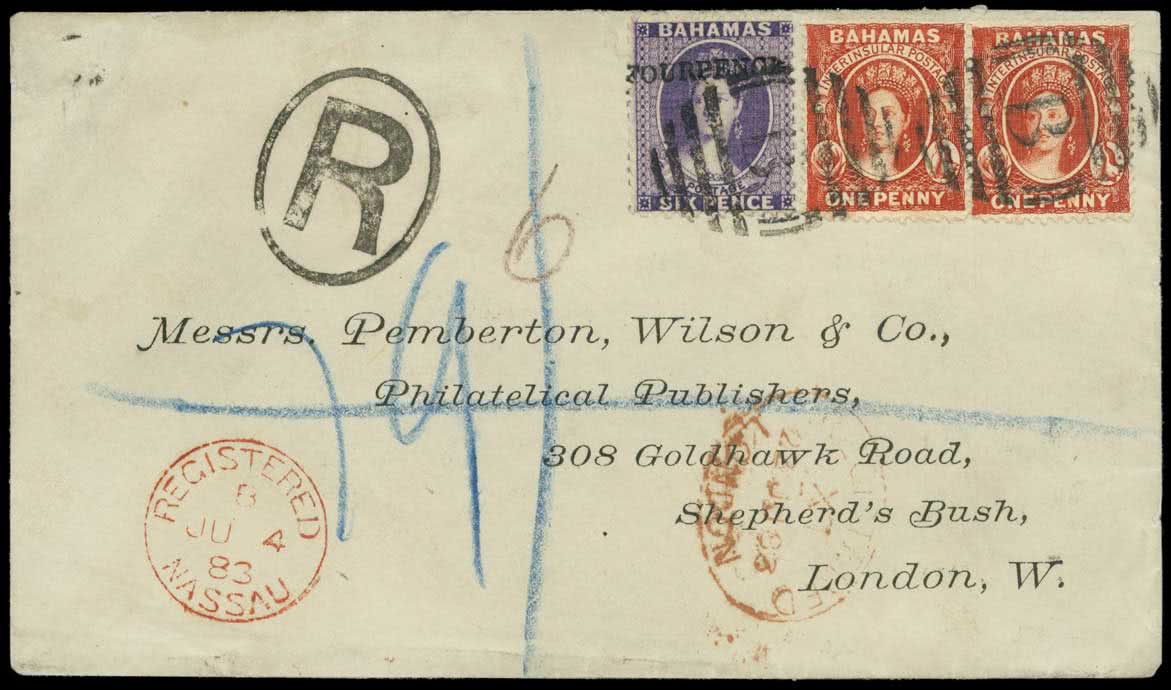 BAHAMAS
FOURPENCE
POSTAGE
SIX PENCE
BAHAMAS
INTERINSULAR POSTAGE
ONE PENNY
BAHAMAS
INTERINSULAR POSTAGE
ONE PENNY
R
6
Messrs. Pemberton, Wilson & Co.,
Philatelical Publishers,
308 Goldhawk Road,
Shepherd's Bush,
London, W.
REGISTERED
B
JU 4
83
NASSAU
LONDON